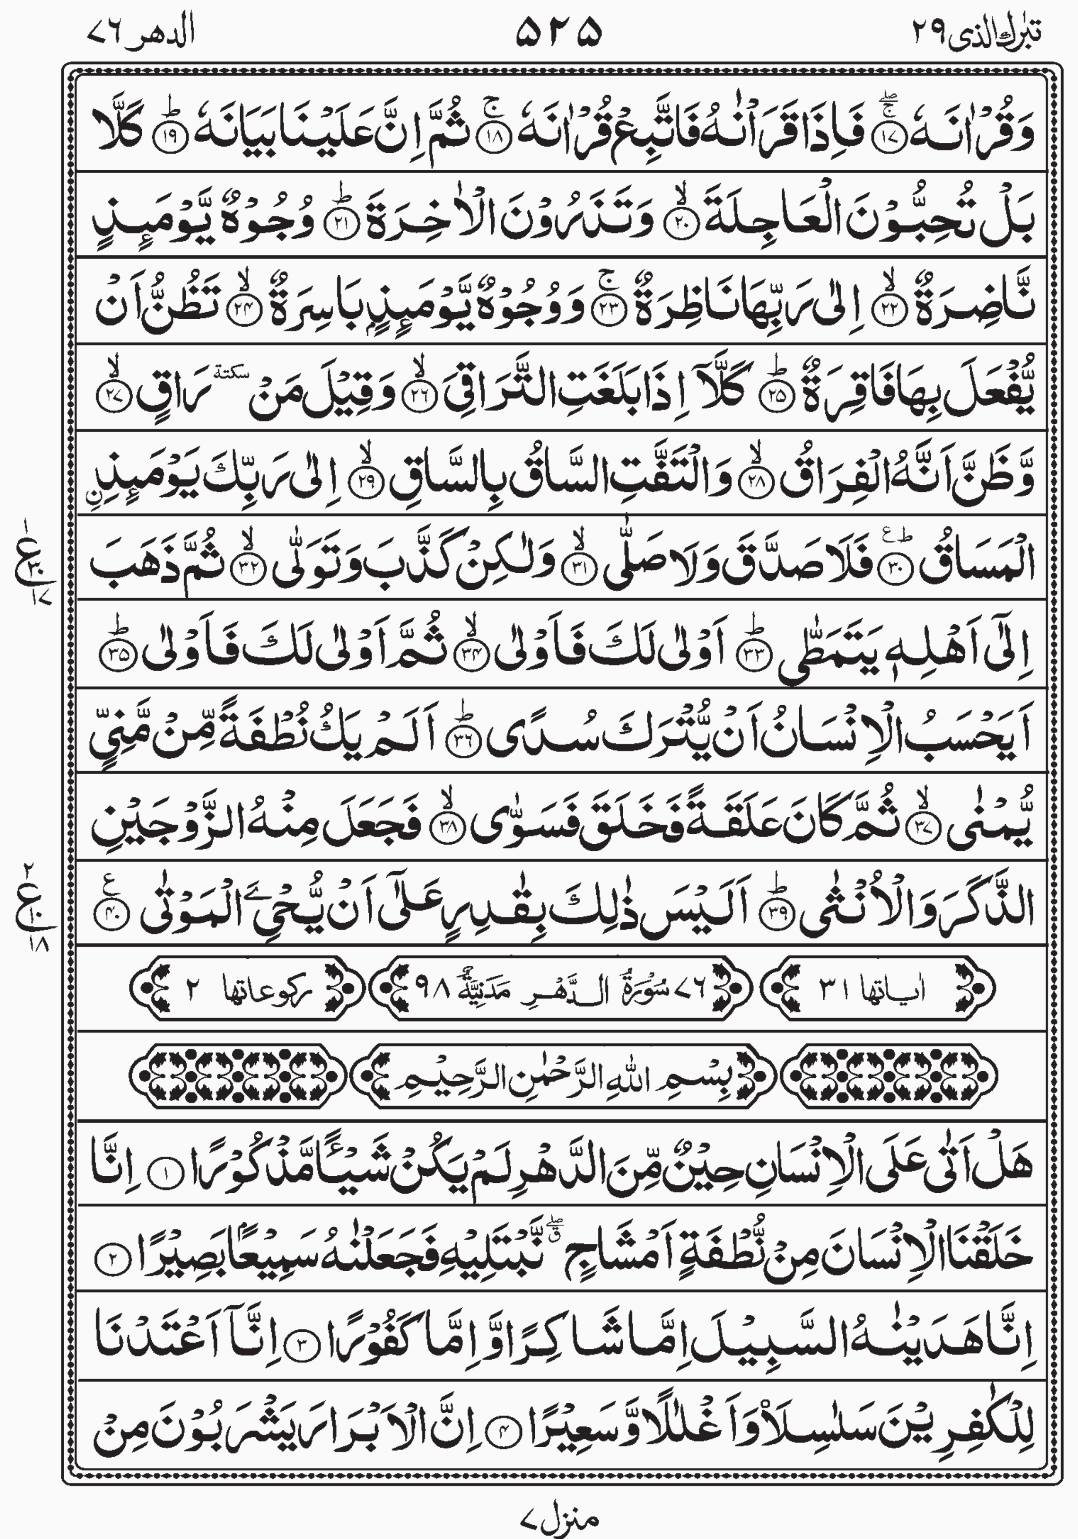 تبٰرك الذی ۲۹ ۵۲۵ الدهر ۷۶
وَقُرْاٰنَهٗ ۚۖ‏ ۱۷ فَاِذَا قَرَاْنٰهُ فَاتَّبِعْ قُرْاٰنَهٗ ۚ‏ ۱۸ ثُمَّ اِنَّ عَلَيْنَا بَيَانَهٗ ؕ‏ ۱۹ كَلَّا
بَلْ تُحِبُّوْنَ الْعَاجِلَةَ ۙ‏ ۲۰ وَتَذَرُوْنَ الْاٰخِرَةَ ؕ‏ ۲۱ وُجُوْهٌ يَّوْمَئِذٍ
نَّاضِرَةٌ ۙ‏ ۲۲ اِلٰى رَبِّهَا نَاظِرَةٌ ۚ‏ ۲۳ وَوُجُوْهٌ يَّوْمَئِذٍۭ بَاسِرَةٌ ۙ‏ ۲۴ تَظُنُّ اَنْ
يُّفْعَلَ بِهَا فَاقِرَةٌ ؕ‏ ۲۵ كَلَّاۤ اِذَا بَلَغَتِ التَّرَاقِىَ ۙ‏ ۲۶ وَقِيْلَ مَنْ سكتة رَاقٍ ۙ‏ ۲۷
وَّظَنَّ اَنَّهُ الْفِرَاقُ ۙ‏ ۲۸ وَالْتَفَّتِ السَّاقُ بِالسَّاقِ ۙ‏ ۲۹ اِلٰى رَبِّكَ يَوْمَئِذِ ۨ
الْمَسَاقُ ؕ ع ۳۰ فَلَا صَدَّقَ وَلَا صَلّٰى ۙ‏ ۳۱ وَلٰكِنْ كَذَّبَ وَتَوَلّٰى ۙ‏ ۳۲ ثُمَّ ذَهَبَ
۱ ع ۳۰ ۱۷
اِلٰٓى اَهْلِهٖ يَتَمَطّٰى ؕ‏ ۳۳ اَوْلٰى لَكَ فَاَوْلٰى ۙ‏ ۳۴ ثُمَّ اَوْلٰى لَكَ فَاَوْلٰى ؕ‏ ۳۵
اَيَحْسَبُ الْاِنْسَانُ اَنْ يُّتْرَكَ سُدًى ؕ‏ ۳۶ اَلَمْ يَكُ نُطْفَةً مِّنْ مَّنِىٍّ
يُّمْنٰى ۙ‏ ۳۷ ثُمَّ كَانَ عَلَقَةً فَخَلَقَ فَسَوّٰى ۙ‏ ۳۸ فَجَعَلَ مِنْهُ الزَّوْجَيْنِ
الذَّكَرَ وَالْاُنْثٰى ؕ‏ ۳۹ اَلَيْسَ ذٰلِكَ بِقٰدِرٍ عَلٰٓى اَنْ يُّحْیَِۧ الْمَوْتٰى ع ۴۰
۲ ع ۱۰ ۱۸
اٰياتها ۳۱ ۷۶ سُوْرَةُ الدَّهْرِ مَدَنِيَّةٌ ۹۸ ركوعاتها ۲
بِسْمِ اللهِ الرَّحْمٰنِ الرَّحِيْمِ
هَلْ اَتٰى عَلَى الْاِنْسَانِ حِيْنٌ مِّنَ الدَّهْرِ لَمْ يَكُنْ شَيْـًٔا مَّذْكُوْرًا ۱ اِنَّا
خَلَقْنَا الْاِنْسَانَ مِنْ نُّطْفَةٍ اَمْشَاجٍ ۖق نَّبْتَلِيْهِ فَجَعَلْنٰهُ سَمِيْعًۢا بَصِيْرًا ۲
اِنَّا هَدَيْنٰهُ السَّبِيْلَ اِمَّا شَاكِرًا وَّاِمَّا كَفُوْرًا ۳ اِنَّاۤ اَعْتَدْنَا
لِلْكٰفِرِيْنَ سَلٰسِلَا۟ وَاَغْلٰلًا وَّسَعِيْرًا ۴ اِنَّ الْاَبْرَارَ يَشْرَبُوْنَ مِنْ
منزل ۷